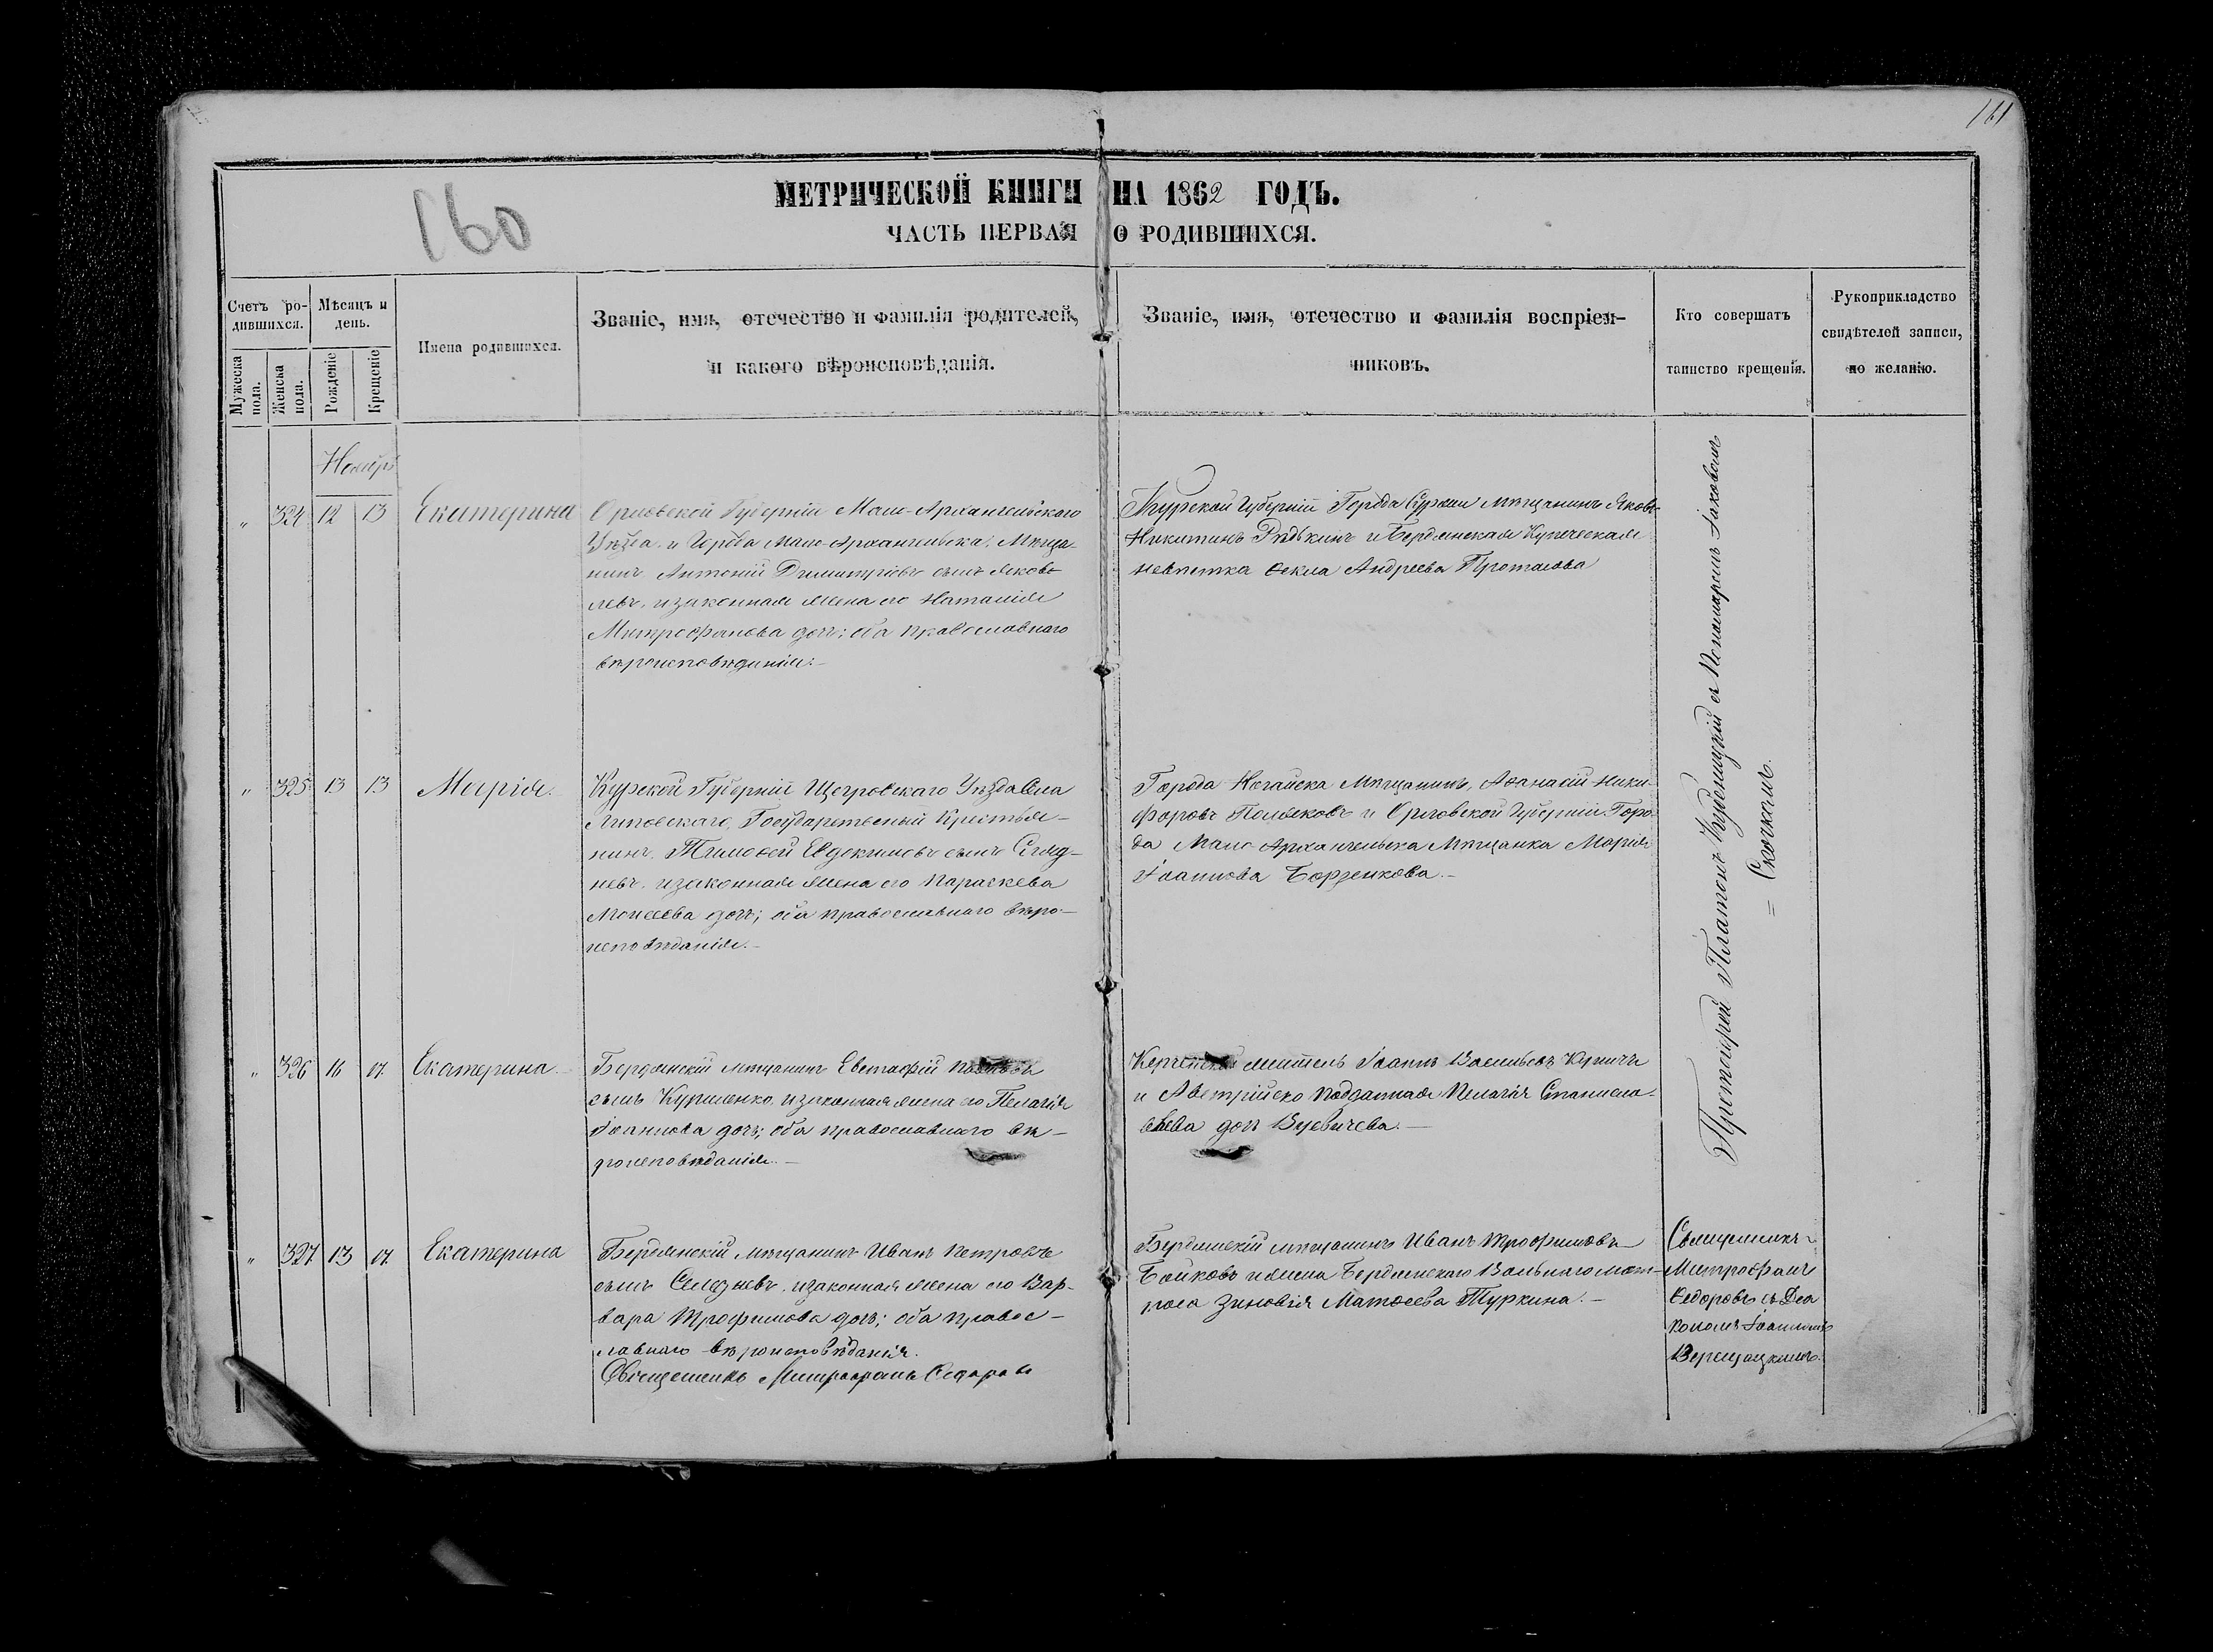 161
160
МЕТРИЧЕСКОЙ КНИГИ НА 1862 ГОДЪ.
ЧАСТЬ ПЕРВАЯ О РОДИВШИХСЯ.
Счетъ ро-
дившихся.
Мужеска пола.
Женска пола.
Мѣсяцъ и
день.
Рожденіе
Крещеніе
Имена родившихся.
Званіе, имя, отечество и фамилія родителей,
и какого вѣроисповѣданія.
Званіе, имя, отечество и фамилія воспріем-
никовъ.
Кто совершатъ
таинство крещенія.
Рукоприкладство
свидѣтелей записи,
по желанію.
Ноябрь
" 324 12 13 Екатерина
Орловской Губерніи Мало-Архангельскаго
Уѣзда и Города Мало-Архангельска, Мѣща-
нинъ Антоній Димитріевъ сынъ Яковл-
левъ, и законная жена его Наталія
Митрофанова дочь; оба православнаго
вѣроисповѣданія.-
Курской Губерніи Города Суджи мѣщанинъ Яковъ
Никитинъ Рѣдькинъ и Бердянская Купеческая
невѣстка Ѳекла Андреева Протасова
" 325 13 13 Марія.
Курской Губерніи Щегровскаго Уѣзда Села
Липовскаго, Государственный Крестья-
нинъ, Тимоѳей Евдокимовъ сынъ
и законная жена его Параскева
Моисеева дочь; оба православнаго вѣро-
исповѣданія.-
Города Ногайска Мѣщанинъ, Аѳанасій Ники-
форовъ Поляковъ и Орловской Губерніи Горо-
да Мало-Архангельска Мѣщанка Марія
Іоаннова Борзенкова.-
" 326 16 17 Екатерина.
Бердянскій мѣщанинъ Евстафій
сынъ Куриленко, и законная жена его Пелагія
Іоаннова дочь; оба православнаго вѣ-
роисповѣданія.-
житель Іоаннъ Васильевъ
и Австрійско подданная Пелагія Станисла-
вова дочь Вуевичева.-
" 327 13 17 Екатерина
Бердянскій мѣщанинъ Иванъ Петровъ
сынъ Селезневъ, и законная жена его Вар-
вара Трофимова дочь; оба правос-
лавнаго вѣроисповѣданія.
Священникъ Митрофанъ Ѳедоровъ
Бердянскій мѣщанинъ Иванъ Трофимовъ
Бойковъ и жена Бердянскаго Вольнаго мат-
роса Зиновія Матѳеева Туркина.-
Протоіерей Платонъ Кубеницкій съ Пономаремъ Іаковомъ
= Скочкомъ.
Священникъ
Митрофанъ
Ѳедоровъ съ Діа
кономъ Іоанномъ
Верещацкимъ.